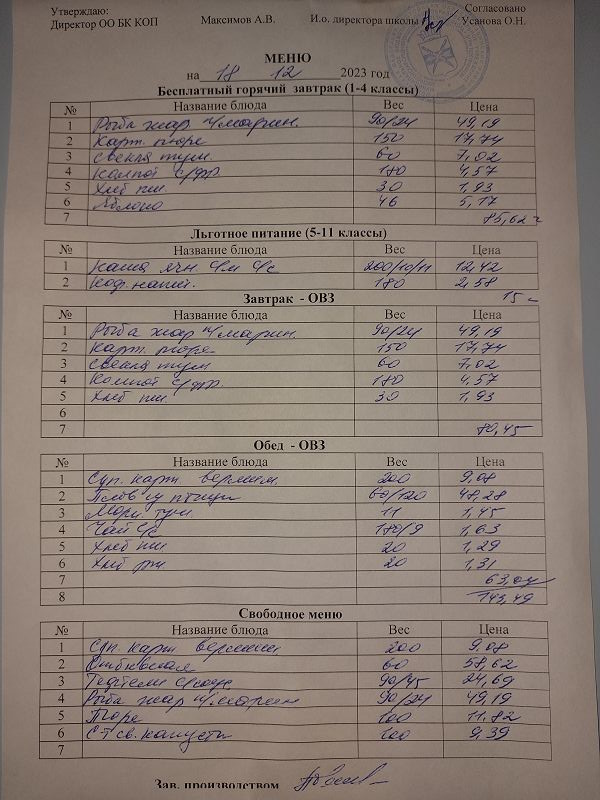 Утверждаю: Согласовано
Директор ОО БК КОП Максимов А.В. И.о. директора школы Усанова О.Н.
МЕНЮ
на 18 12 2023 год
Бесплатный горячий завтрак (1-4 классы)
№ Название блюда Вес Цена
1 Рыба жар. марин. 90/24 49,19
2 Карт. пюре 150 17,74
3 Свекла туш. 60 7,02
4 Компот с/фр 180 4,57
5 Хлеб пш. 30 1,93
6 Яблоко 46 5,17
7 85,62
Льготное питание (5-11 классы)
№ Название блюда Вес Цена
1 Каша ячн. 200/10/11 12,42
2 Коф. напит. 180 2,58
15 -
Завтрак - ОВЗ
№ Название блюда Вес Цена
1 Рыба жар марин. 90/24 49,19
2 Карт. пюре 150 17,74
3 Свекла туш 60 7,02
4 Компот с/фр 180 4,57
5 Хлеб пш. 30 1,93
6
7 80,45
Обед - ОВЗ
№ Название блюда Вес Цена
1 Суп. карт. вермиш. 200 9,08
2 Плов с/ птицы 60/120 48,28
3 Морк. туш. 11 1,45
4 Чай с/с 180/9 1,63
5 Хлеб пш 20 1,29
6 Хлеб рж 20 1,31
7 63,04
8 143,49
Свободное меню
№ Название блюда Вес Цена
1 Суп. карт. вермиш 200 9,08
2 Отбивная 60 58,62
3 Тефтели 90/45 24,69
4 Рыба жар марин 90/24 49,19
5 Пюре 100 11,82
6 Ст св. капусты 100 9,39
7
Зав. производством